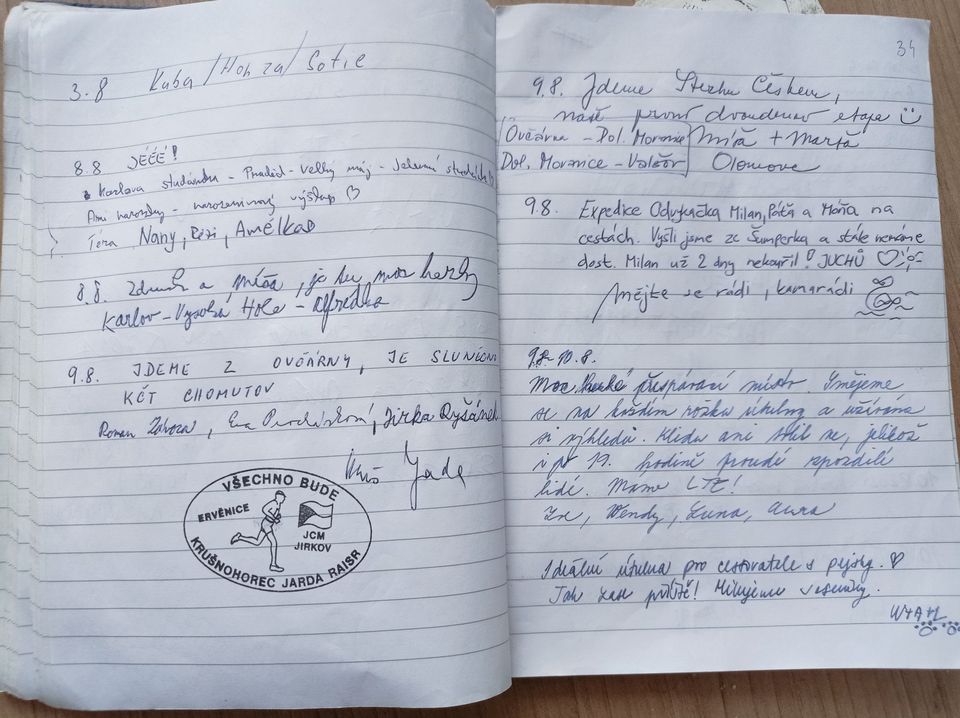 3.8 Kuba / Honza / Sofie
8.8 JÉÉÉ!
Karlova studánka - Praděd - Velký máj - Jelení studánka
narozeninový výstup ♡
Nany, Rézi, Amélka
8.8. Zdeněk a Míša, je tu moc hezky
Karlov - Vysoká Hole - Alfrédka
9.8. JDEME Z OVČÁRNY, JE SLUNÍČKO
KČT CHOMUTOV
Roman, Eva Procházková, Jirka Ryšánek
Jarda
VŠECHNO BUDE
ERVĚNICE
JCM
JIRKOV
KRUŠNOHOREC JARDA RAISR
34
9.8. Jdeme Stezku Českem,
naše první dvoudenní etapa
Ovčárna - Dol. Moravice Míša + Marťa
Dol. Moravice - Valšov Olomouc
9.8. Expedice Odvykačka Milan, Páťa a Móňa na
cestách. Vyšli jsme ze Šumperka a stále nemáme
dost. Milan už 2 dny nekouřil! JUCHŮ ♡
Mějte se rádi, kamarádi
9.8-10.8.
Moc hezké přespávací místo. Smějeme
se na každém rožku útulny a užíváme
si výhledů. Klidu ani, jelikož
i po 19. hodině proudí spozdilí
lidé. Máme LTE!
Wendy, Luna, Aura
Ideální útulna pro cestovatele s pejsky. ♡
Tak zase příště! Milujeme Jeseníky.